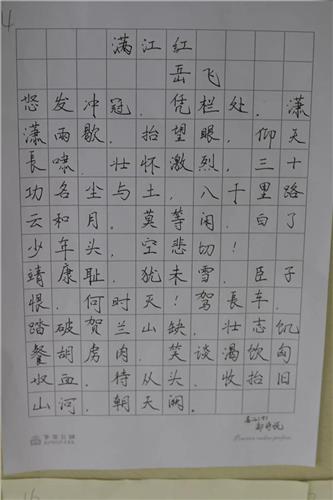 4
满江红
岳飞
怒发冲冠. 凭栏处. 潇
潇雨歇. 抬望眼. 仰天
長啸. 壮怀激烈. 三十
功名尘与土. 八千里路
云和月. 莫等闲. 白了
少年头. 空悲切!
靖康耻. 犹未雪. 臣子
恨. 何时灭! 驾長车.
踏破贺兰山缺. 壮志饥
餐胡虏肉. 笑谈渴饮匈
奴血. 待从头. 收拾旧
山河. 朝天阙.
16